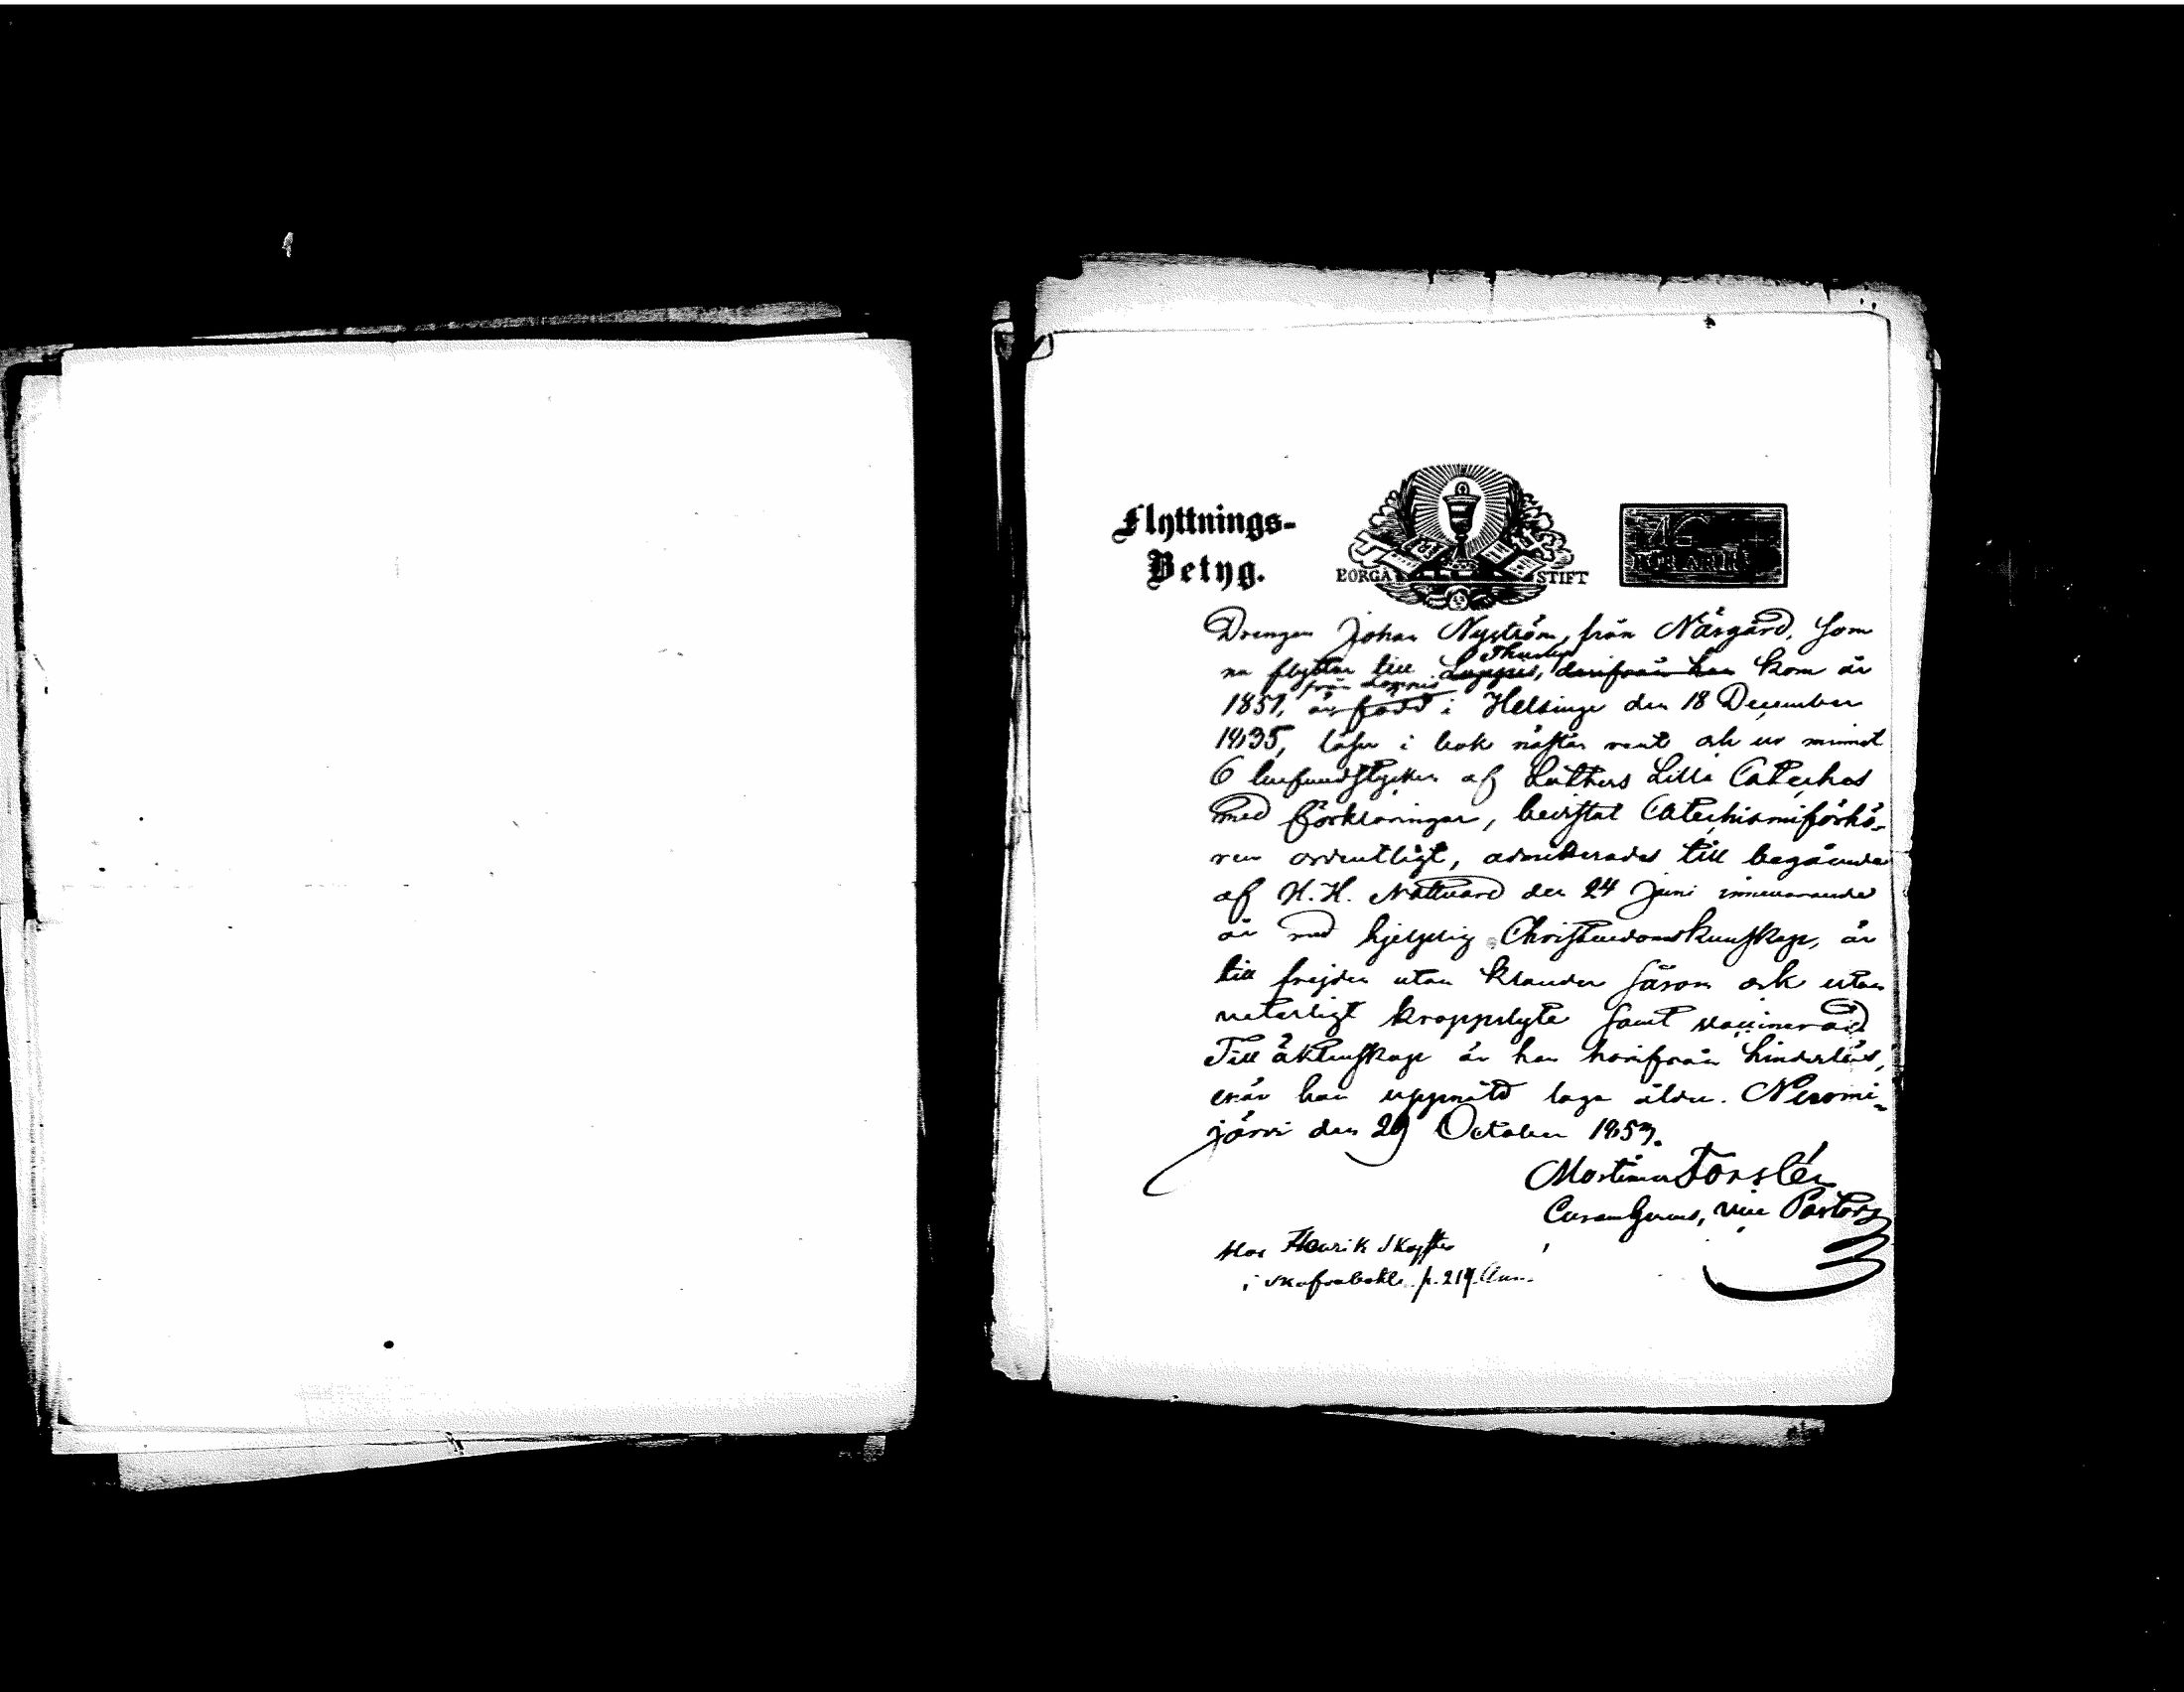 Flyttnings-
Betyg.
BORGÅ STIFT
Drengen Johan Nyström, från Nårgård, som
Thusby
nu flyttar till Loppis, derifrån han kom år
från Loppis
1851, är född i Helsinge den 18 December
1835, läser i bok nästan rent och ur minnet
6 hufvudstycken af Luthers Lilla Cateches
med förklaringar, bevistat Catechismiförhö-
ren ordentligt, admitterades till begående
af H. H. Nattvard den 24 Juni innevarande
år med hjelplig Christendomskunskap, är
till frejden utan klander såsom ock utan
veterligt kroppslyte samt vaccinerad
Till äktenskap är han härifrån hinderlös,
enär han uppnått laga ålder. Nurmi-
järvi den 29 October 1853.
Mortimer Forslén
vice Pastor
Hos Henrik
i p. 219.